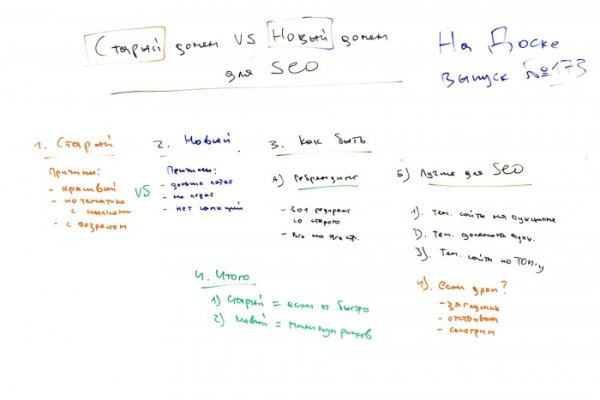 Старый домен VS Новый домен
для SEO
На Доске
выпуск №173
1. Старый
Причины:
- красивый
- по тематике
с ссылками
- с возрастом
VS
2. Новый
Причины:
- дольше
- нет санкций
3. Как быть
А) Ребрендинг
- 301 редирект
со старого
- Все на все стр.
Б) Лучше для SEO
1). Тем. сайты на аукционе
2). Тем. домены аукц.
3). Тем. сайты по ТОП-у
4). если дроп?
- заглушка
- отстаиваем
- смотрим
4. Итого
1) Старый = если ок быстро
2) Новый = минимум рисков